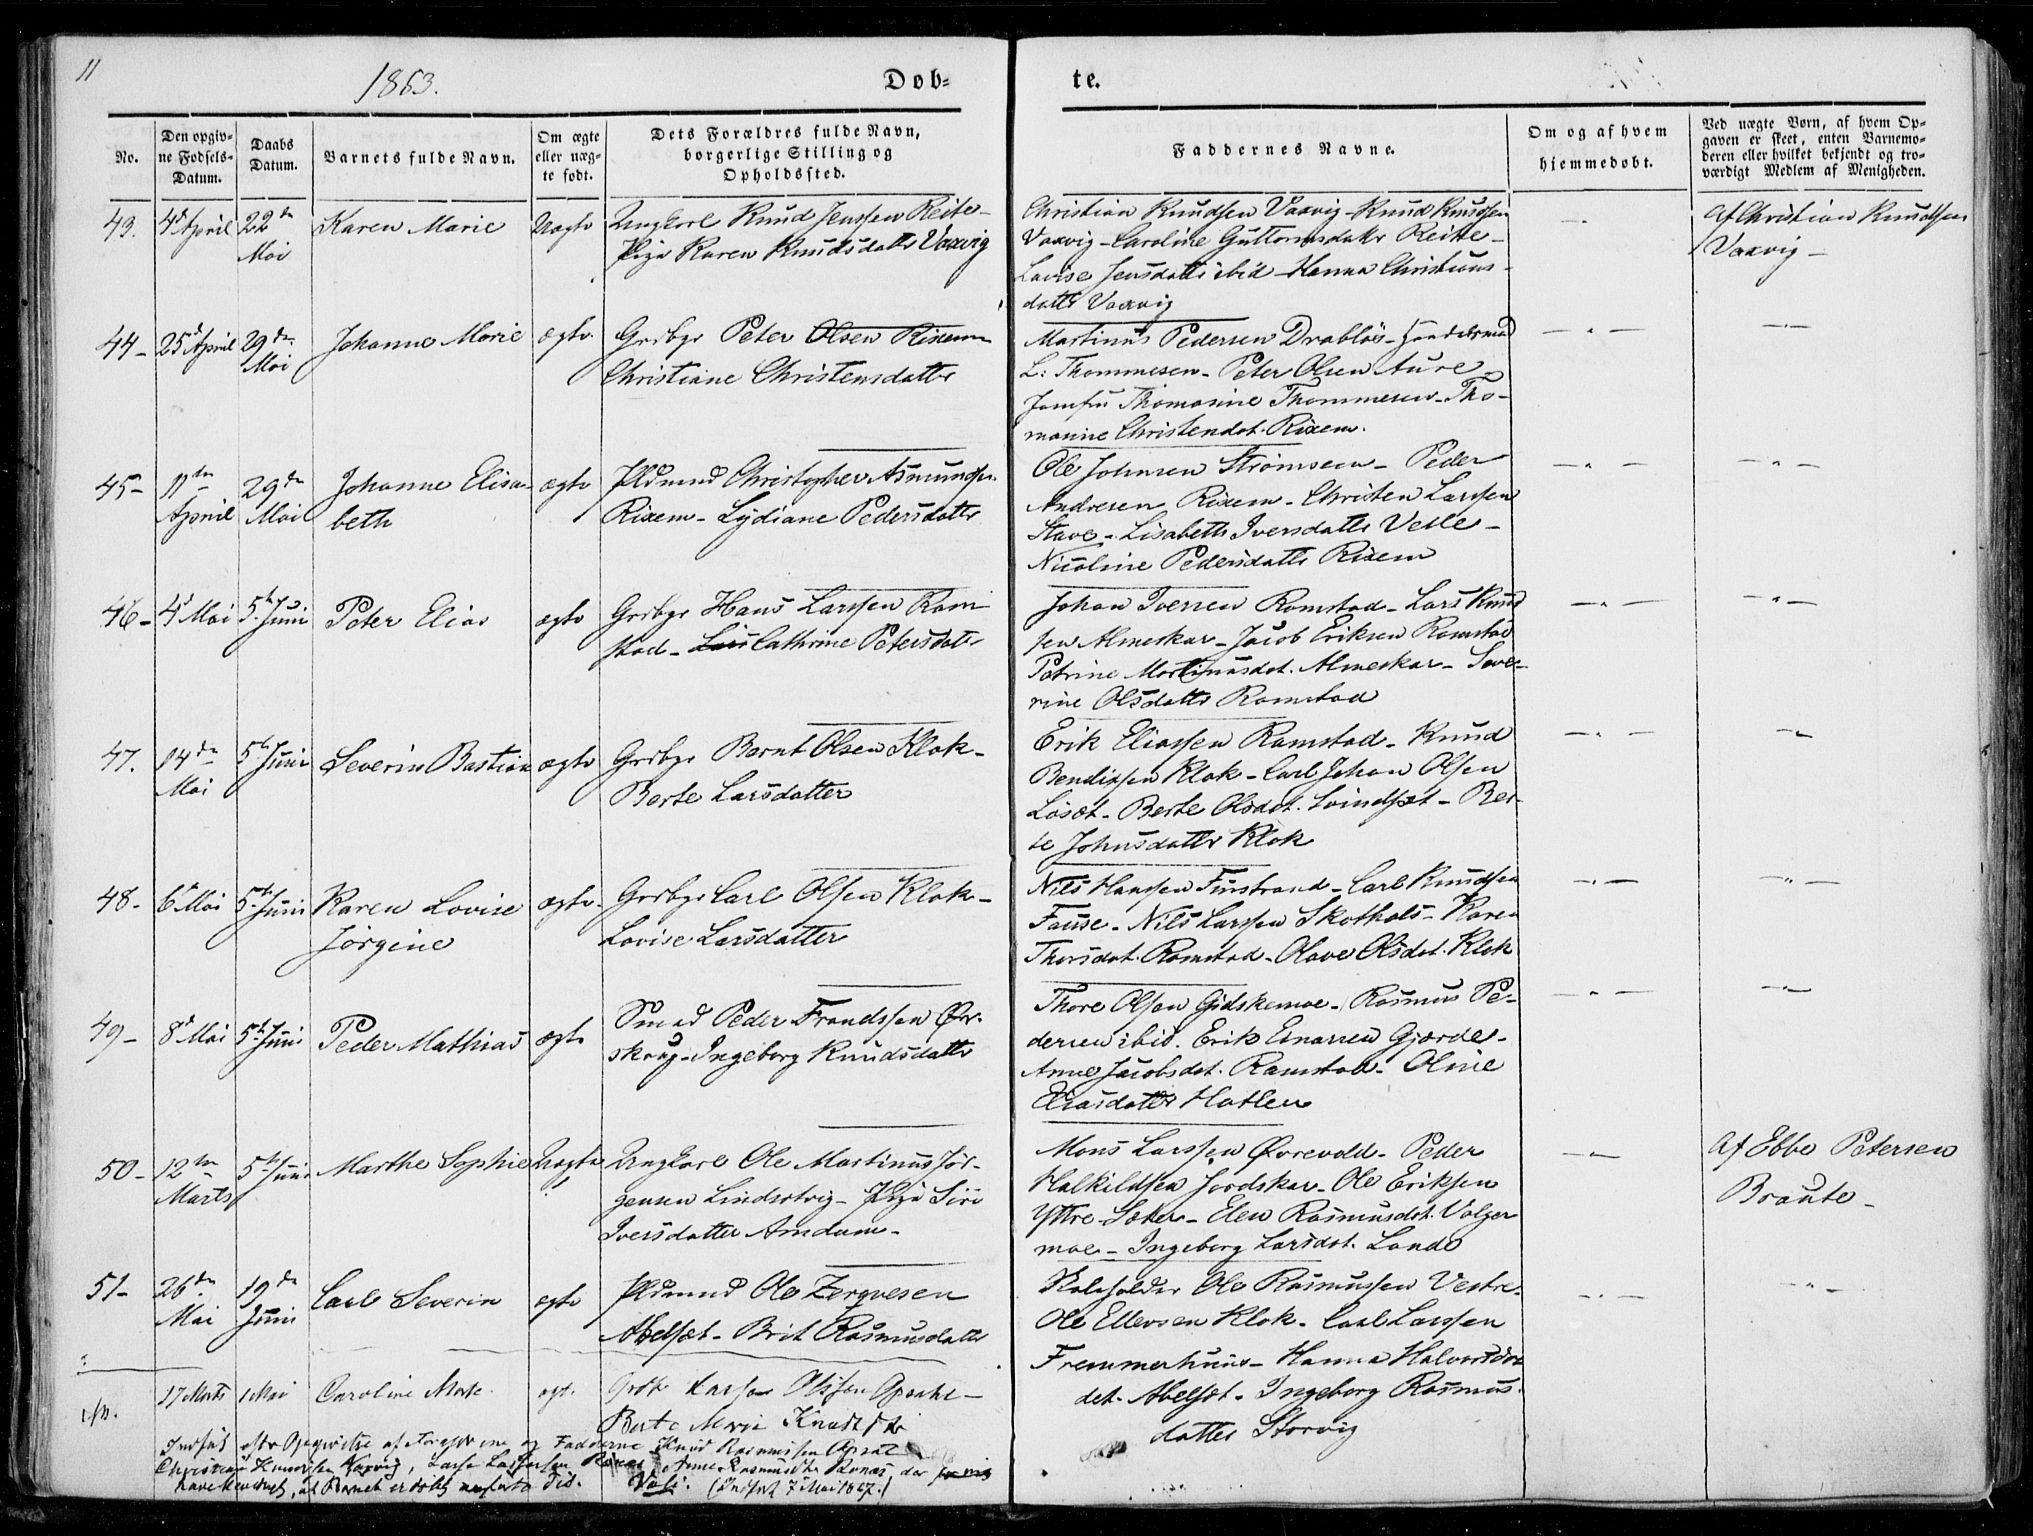 11
1863.
Døb=
te.
No.
Den opgiv=
ne Fødsels=
Datum.
Daabs
Datum.
Barnets fulde Navn.
Om ægte
eller uæg=
te født.
Dets Forældres fulde Navn,
borgerlige Stilling og
Opholdssted.
Faddernes Navne.
Om og af hvem
hjemmedøbt.
Ved uægte Børn, af hvem Op=
gaven er skeet, enten Barnemo=
deren eller hvilket bekjendt og tro=
værdigt Medlem af Menigheden.
43.
4d April
22de
Mai
Karen Marie
Uægte
Ungkarl Knud Jenssen Reite-
Pige Karen Knudsdatter Vaxvig
Christian Knudsen Vaxvig - Knud Knudsen
Vaxvig - Caroline Guttormsdatr Reite -
Lovise Jensdatter ibid - Hanna Christians-
datter Vaxvig
Af Christian Knudssen
Vaxvig -
44-
25d April
29de
Mai
Johanne Marie
ægte.
Grdbgr Peter Olsen Rixem
Christiane Christensdatter
Martinus Pedersen Drabløs - Handelsmd
L: Thommesen - Peter Olsen Aure -
Jomfru Thomasine Thommesen - Tho-
masine Christendat. Rixem.
45-
11te
April
29de
Mai
Johanne Elisa-
beth
ægte
Pldmnd Christopher Asmundsen
Rixem - Lydiane Pedersdatter
Ole Johnsen Strømseem - Peder
Andresen Rixem - Christen Larssen
Stave - Lisabeth Iversdatter Vesle -
Nicoline Pedersdatter Rixem
46-
4d Mai
5te Juni
Peter Elias
ægte
Grdbgr Hans Larssen Ram
stad - Cathrine Petersdatr
Johan Iversen Ramstad - Lars Knud
sen Almeskar - Jacob Eriksen Ramstad
Petrine Martinusdat. Almeskar - Seve-
rine Olsdatter Ramstad
47.
14de
Mai
5te Juni
Severin Bastian
ægte
Grdbgr Bernt Olsen Klok -
Berte Larsdatter
Erik Eliassen Ramstad - Knud
Bendixsen Klok - Carl Johan Olsen
Løset - Berte Olsdat. Svindset - Ber-
te Johnsdatter Klok
48-
6d Mai
5te Juni
Karen Lovise
Jørgine
ægte.
Grdbgr Carl Olsen Klok -
Lovise Larsdatter
Nils Hanssen Finstrand - Carl Knudsen
Fause - Nils Larssen Skothals - Karen
Thorsdat. Ramstad - Olave Olsdat. Klok
49-
8d Mai
5te Juni
Peder Mathias
ægte
Smed Peder Frandssen Ør-
skoug - Ingeborg Knudsdatter
Thore Olsen Gidskemoe - Rasmus Pe-
dersen ibid. Erik Einarsen Gjærde -
Anne Jacobsdat. Ramstad - Oline
Eliasdatter Hatlen
50-
12te
Marts
5te Juni
Marthe Sophie
Uægte
Ungkarl Ole Martinus Jør-
gensen Lindsetvig - Pige Siri
Iversdatter Amdam -
Mons Larssen Ørevold - Peder
Halkildsen Jordskar - Ole Eriksen
Yttre Sæter - Elen Rasmusdat. Valger
moe - Ingeborg Larsdat. Lande
Af Ebbe Petersen
Braute -
51-
26de
Mai
19de
Juni
Carl Severin
ægte
Pldmnd Ole Zerquesen
Abelset - Brit Rasmusdatter
Skoleholder Ole Rasmussen Vestre -
Ole Ellevsen Klok - Carl Larssen
Fremmerhuus - Hanna Halvorsdat
dat. Abelset - Ingeborg Rasmus-
datter Storvig
17 Marts
1 Mai
Caroline Marte.
ægt.
Grdbr Olssen
Berte Marie
Indført efter Opgivelse af Forældrene og Fadderne Knud Rasmussen
Christian Knudsen Vaxvig, Anne Rasmusdtr
have bevidnet, at Barnet er døbt Tid. (Indført 7 Mai 1867.)